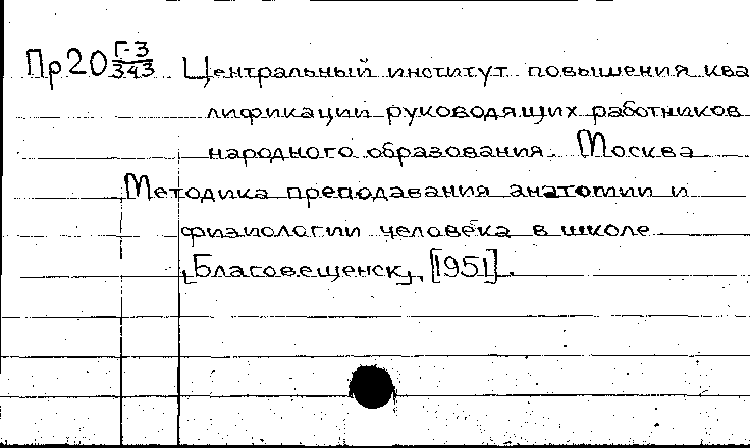 Пр20 Г-3/343 Центральный институт повышения ква
лификации руководящих работников
народного образования. Москва
Методика преподавания анатомии и
физиологии человека в школе
[Благовещенск], [1951].